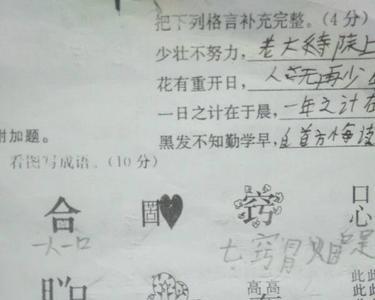 把下列格言补充完整。(4分)
少壮不努力，老大徒院上
花有重开日，人无再少
一日之计在于晨，一年之计在
黑发不知勤学早，白首方悔读
附加题。
看图写成语。(10分)
合 固 窍 口心
一人一口 七窍冒烟
高高 此此